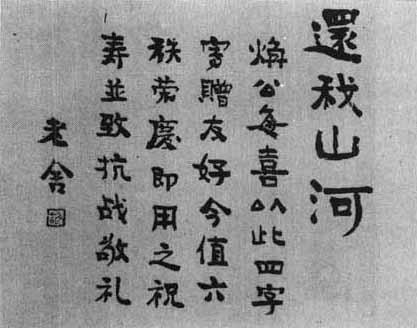 還我山河
焕公每喜以此四字
寫贈友好今值六
秩荣慶即用之祝
寿並致抗战敬礼
老舍